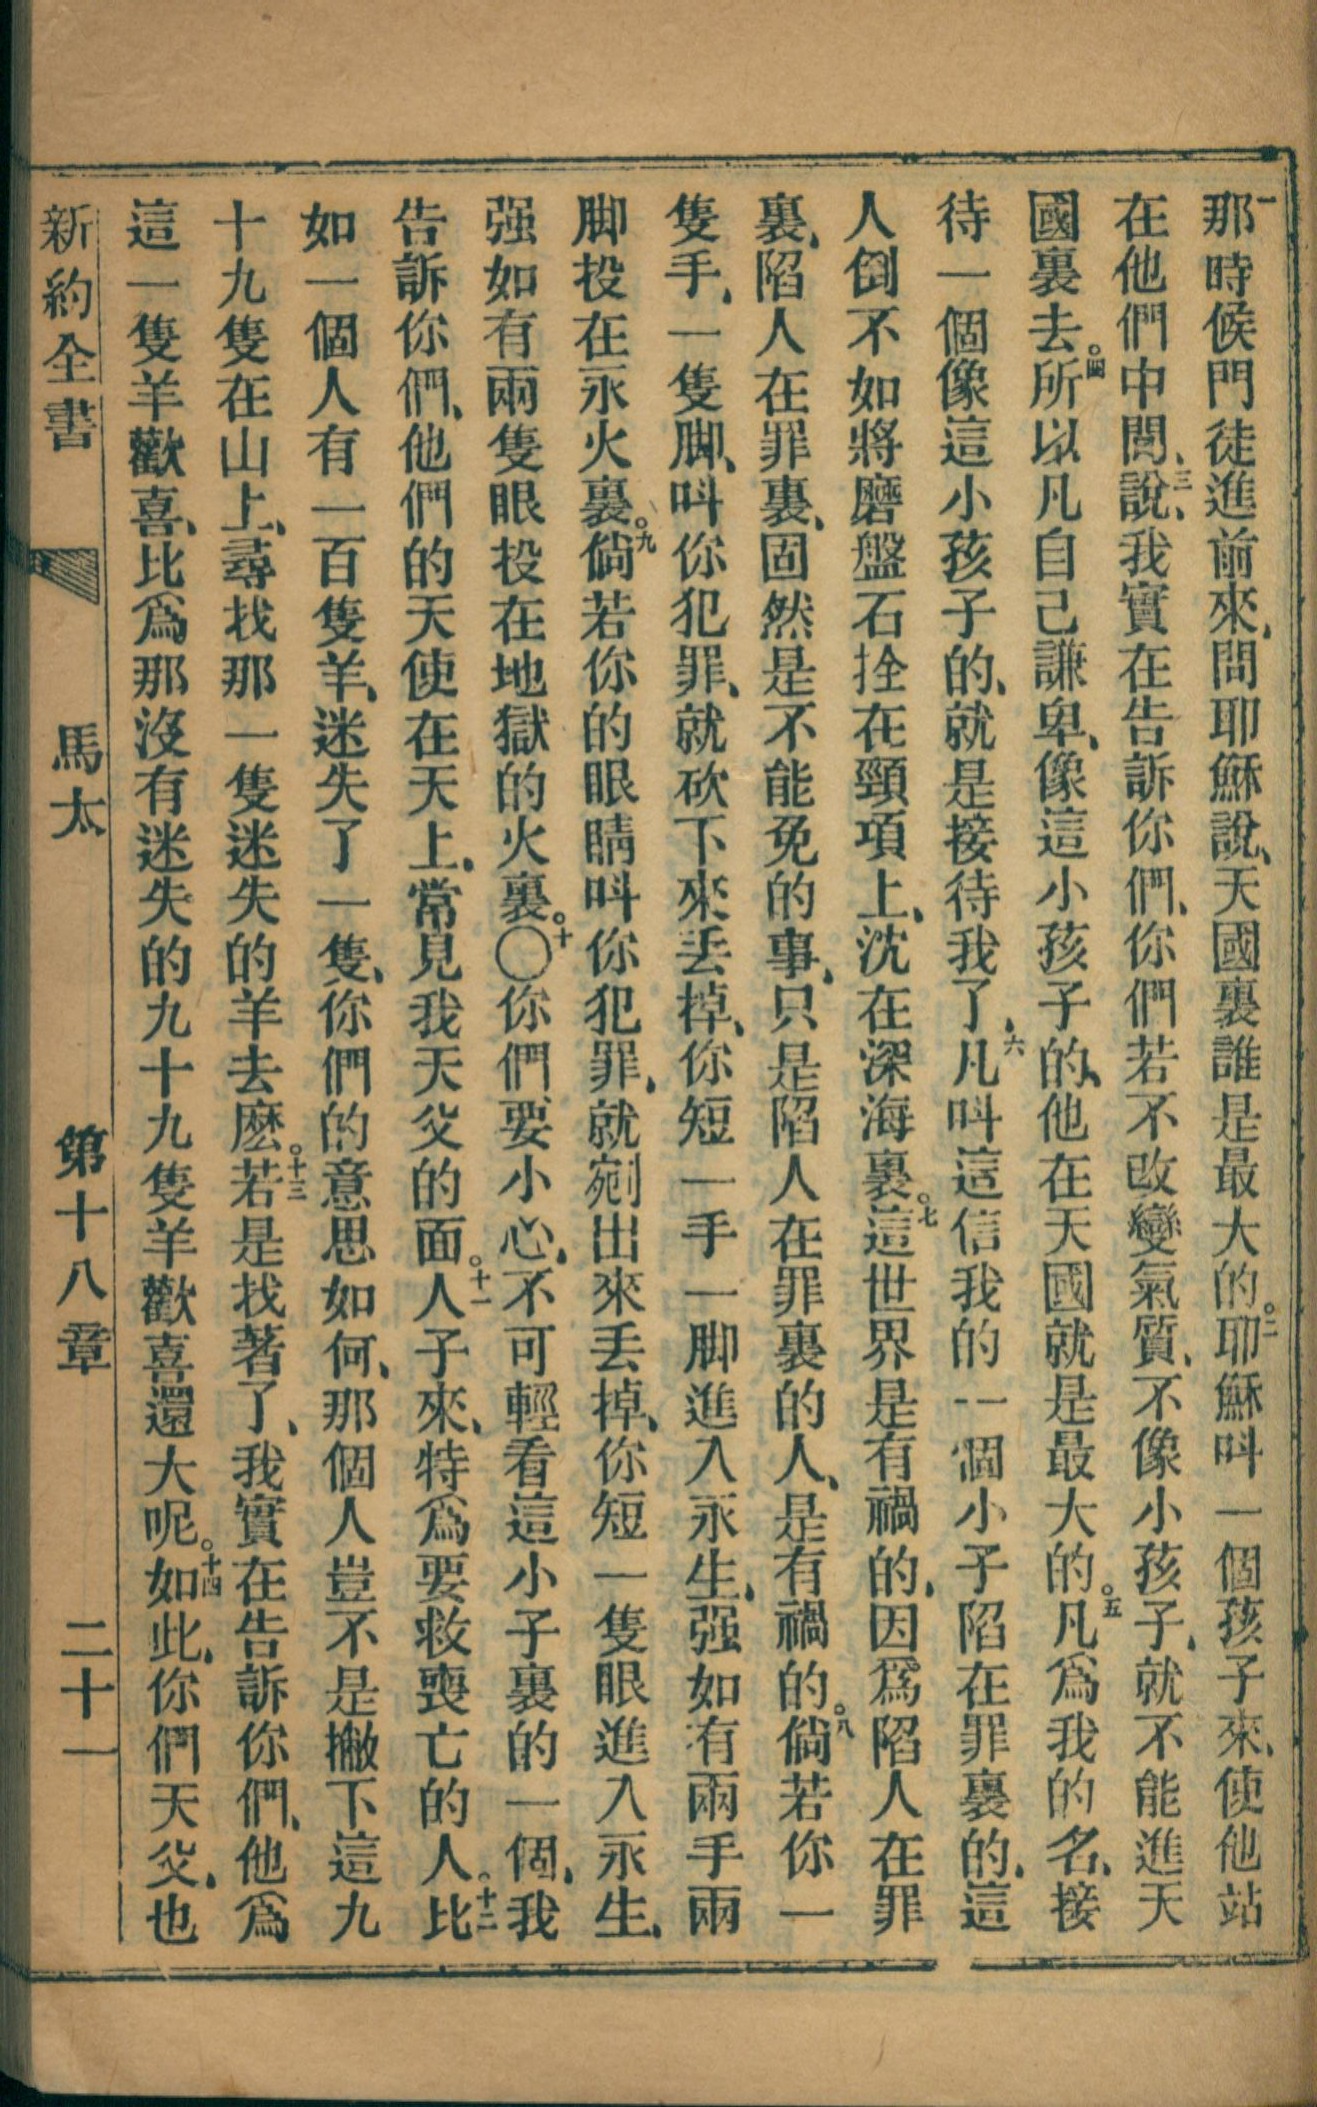 一那時候門徒進前來、問耶穌說、天國裏誰是最大的。二耶穌呌一個孩子來、使他站
在他們中間、三說、我實在告訴你們、你們若不改變氣質、不像小孩子、就不能進天
國裏去。四所以凡自己謙卑、像這小孩子的、他在天國就是最大的。五凡爲我的名、接
待一個像這小孩子的、就是接待我了、六凡呌這信我的一個小子陷在罪裏的、這
人倒不如將磨盤石拴在頸項上、沈在深海裏。七這世界是有禍的、因爲陷人在罪
裏、陷人在罪裏、固然是不能免的事、只是陷人在罪裏的人、是有禍的。八倘若你一
隻手、一隻脚、呌你犯罪、就砍下來丟掉、你短一手一脚進入永生、强如有兩手兩
脚投在永火裏。九倘若你的眼睛呌你犯罪、就剜出來丟掉、你短一隻眼進入永生、
强如有兩隻眼投在地獄的火裏。十〇你們要小心、不可輕看這小子裏的一個、我
告訴你們、他們的天使在天上、常見我天父的面。十一人子來、特爲要救喪亡的人。十二比
如一個人有一百隻羊、迷失了一隻、你們的意思如何、那個人豈不是撇下這九
十九隻在山上、尋找那一隻迷失的羊去麽。十三若是找著了、我實在告訴你們、他爲
這一隻羊歡喜、比爲那沒有迷失的九十九隻羊歡喜還大呢。十四如此、你們天父、也
新約全書 馬太 第十八章 二十一